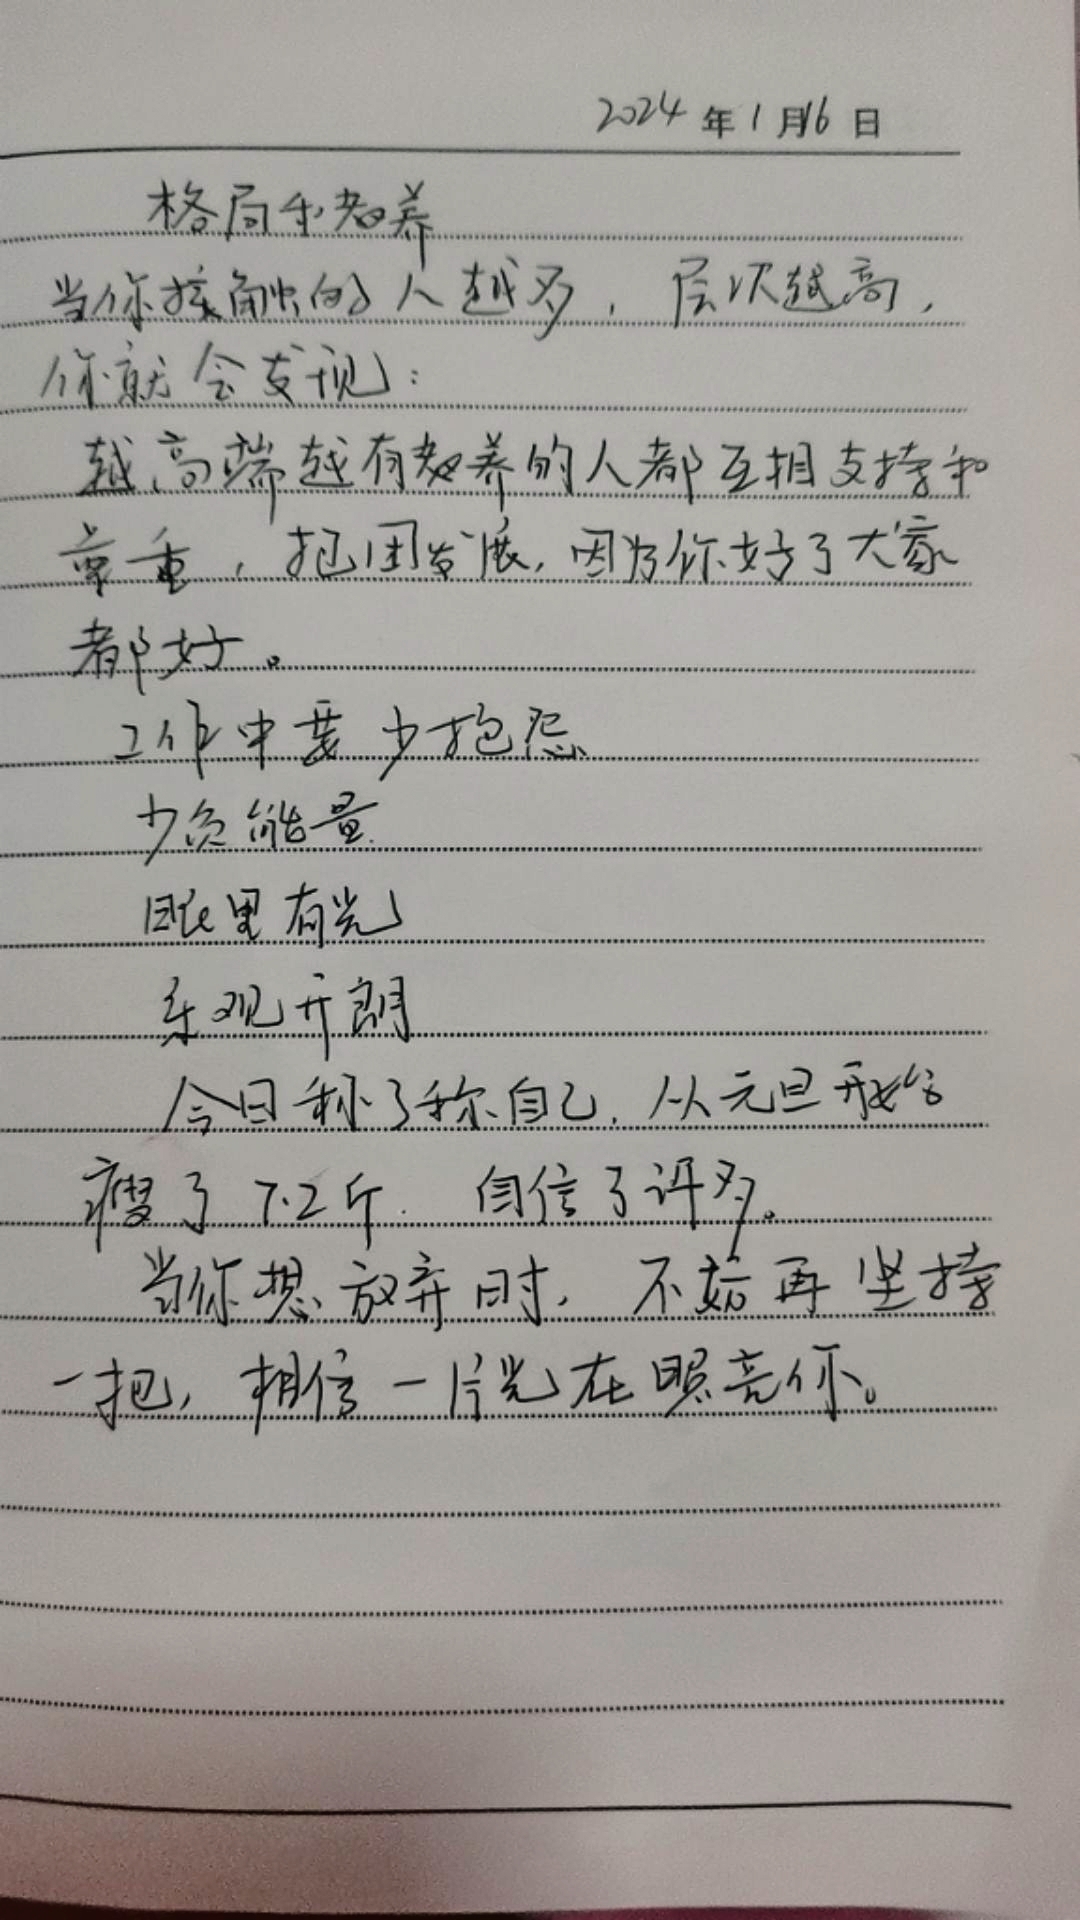 2024年1月16日
格局和教养
当你接触的人越多，层次越高，
你就会发现：
越高端越有教养的人都互相支持和
尊重，抱团发展，因为你好了大家
都好。
工作中要少抱怨
少负能量
眼里有光
乐观开朗
今日称了称自己，从元旦开始
瘦了7.2斤. 自信了许多。
当你想放弃时，不妨再坚持
一把，相信一片光在照亮你。